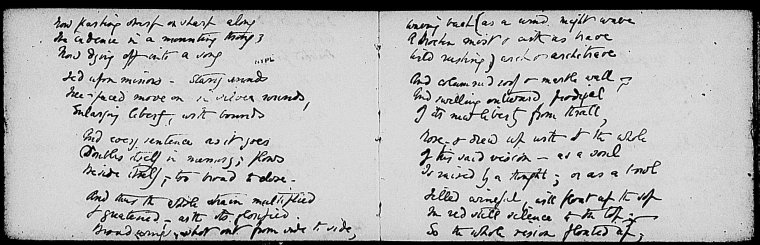 Now pushing on
The cadence in a mounting throng;
Now dying off into a song
Fed upon minors - starry sounds
Free-paced move on in silver rounds,
Enlarging liberty, with bounds
And every sentence as it goes
Doubles itself in meaning; flows
Beside itself, too broad to close.
And thus the whole strain multiplied
& greatened - with its glorified
Broad wings, shot out from side to side,
waving vast (as a wind might wave
A broken mist) & with as brave
wild rushing, arch & architrave
And columned roof & marble wall;
And swelling outward, prodigal
Of its new liberty from thrall,
Rose & drew up with it the whole
Of this said vision - as a soul
Is raised by a thought; or as a
will float up the
In red still silence to the top -
So the whole vision floated up;